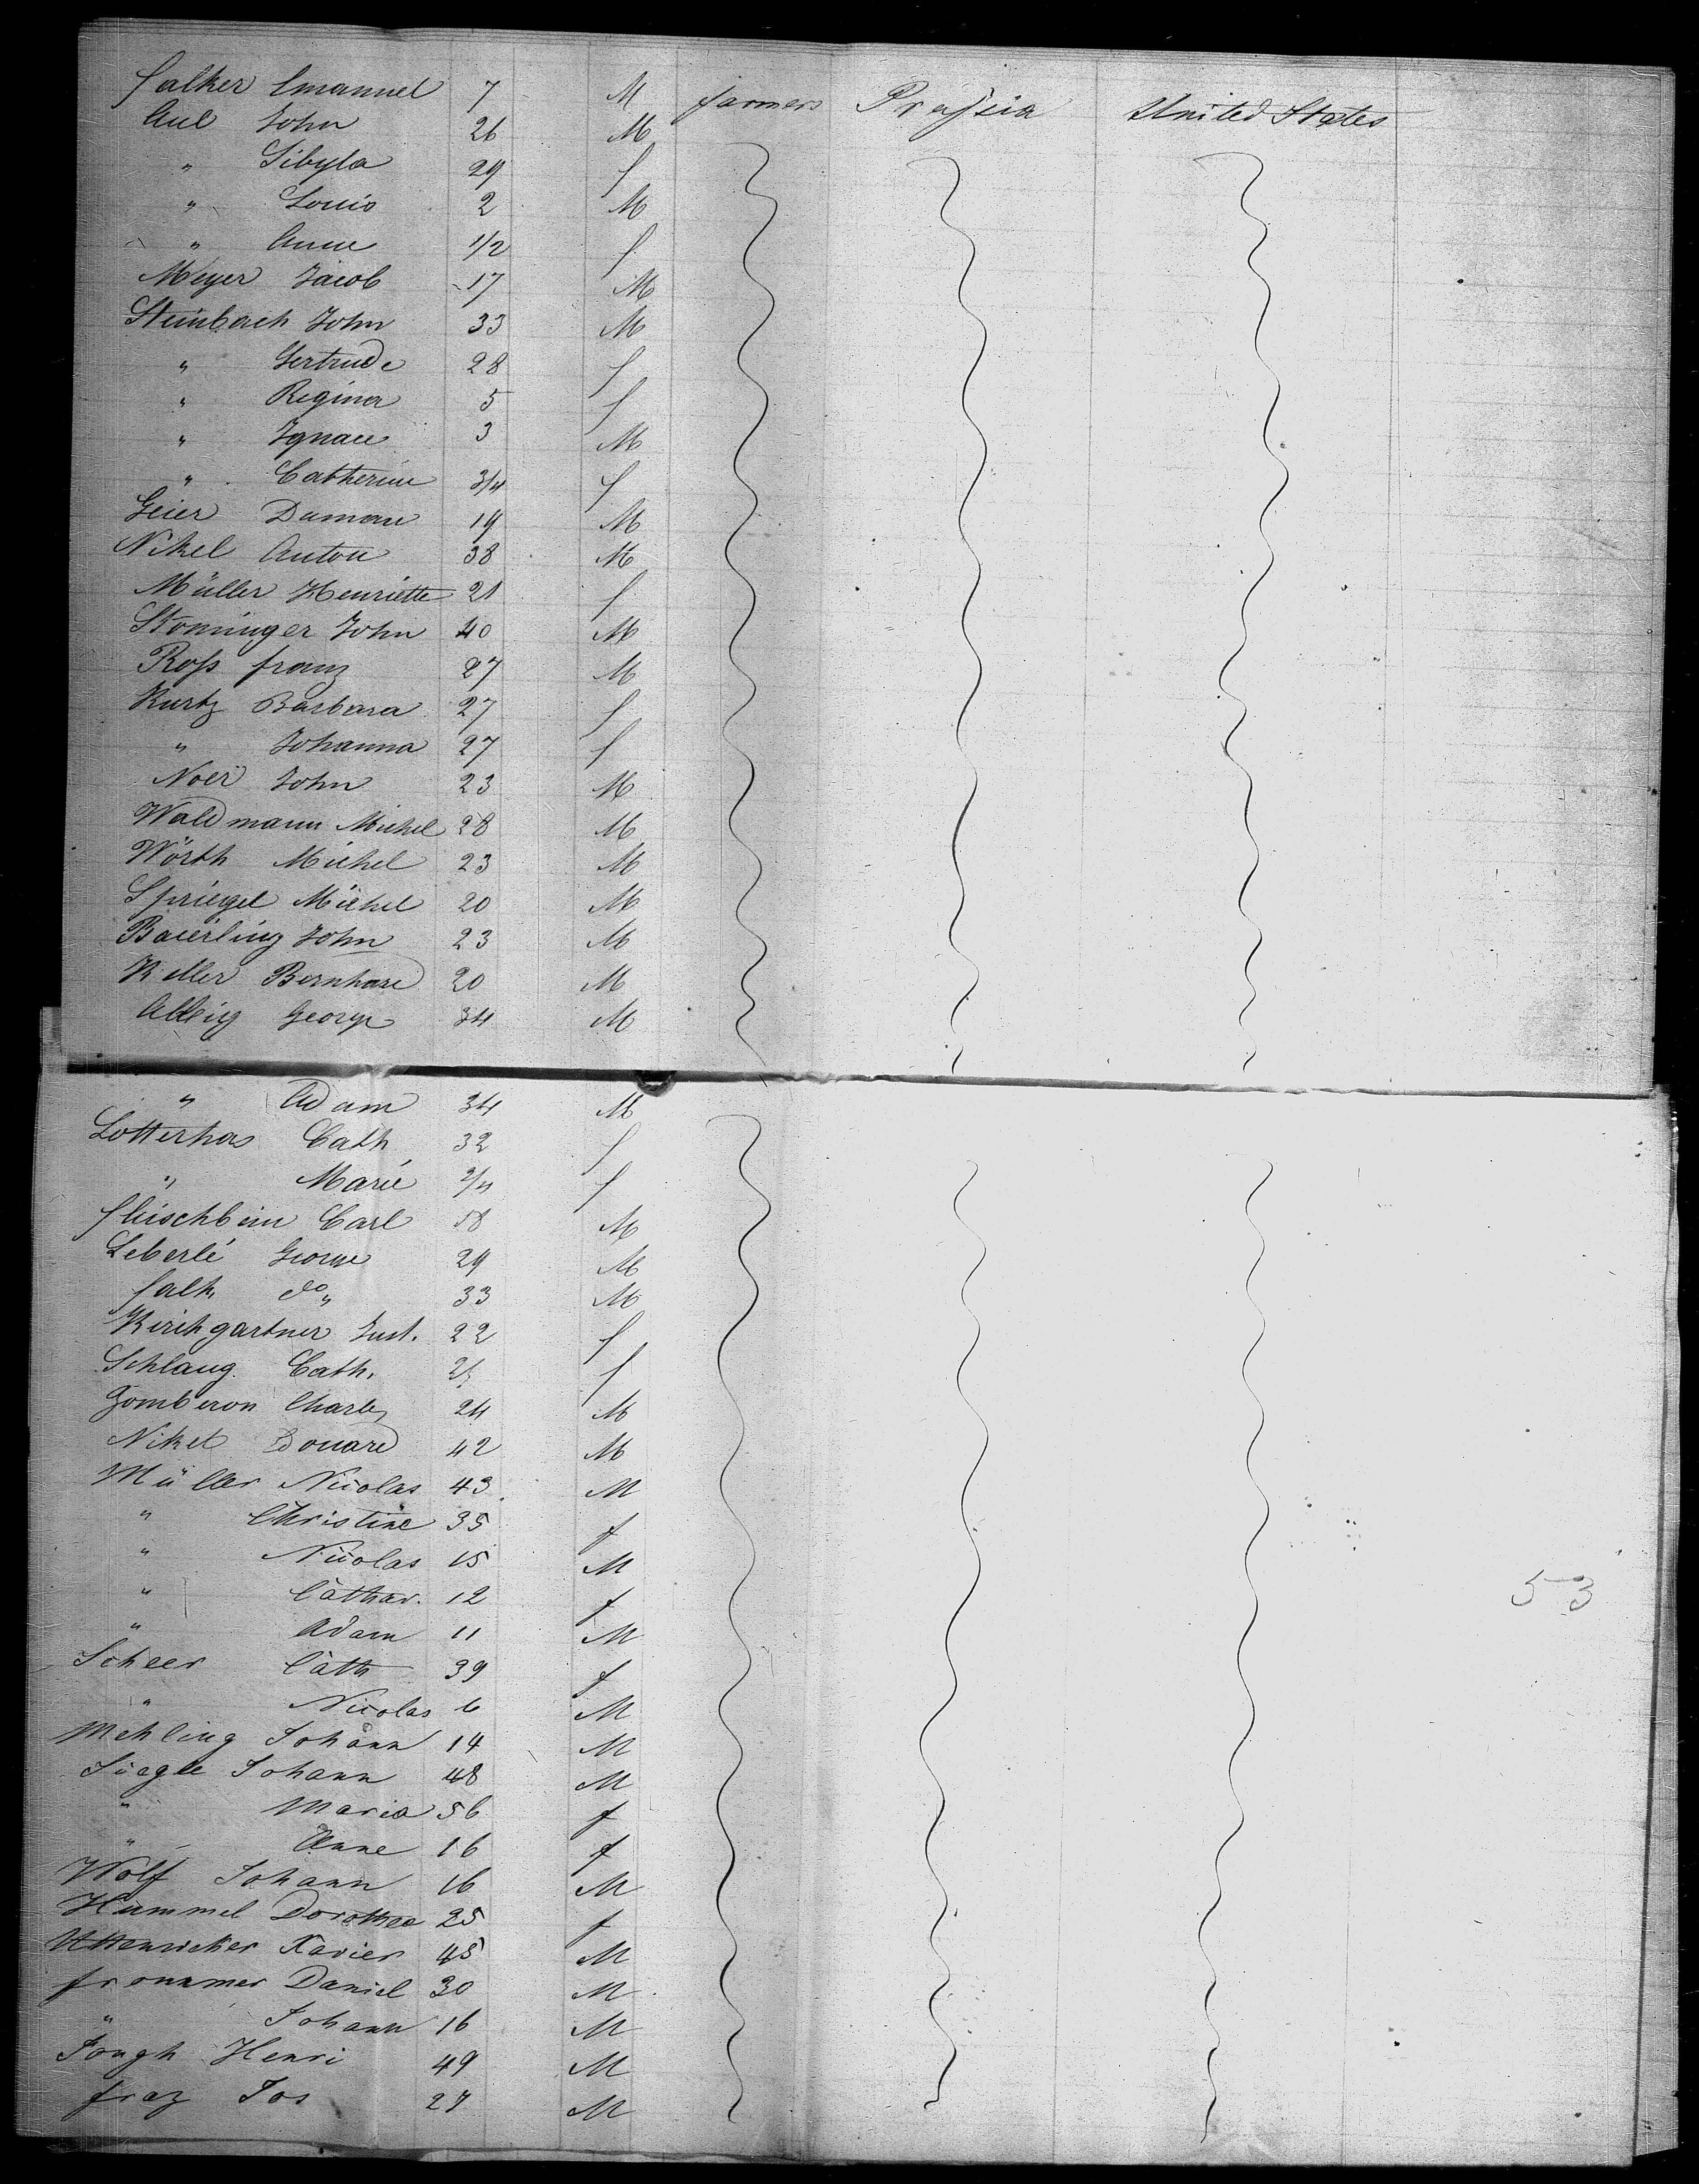 falker Emanuel 7 M farmers Prussia United States
Aul John 26 M
" Sibyla 29 f
" Louis 2 M
" Anne 1/2 f
Meyer Jacob 17 M
Steinbach John 33 M
" Gertrude 28 f
" Regina 5 f
" Ignace 3 M
" Catherine 3/4 f
Geier Damian 19 M
Nikel Anton 38 M
Müller Henriette 21 f
Stoninger John 40 M
Ross franz 27 M
Kurtz Barbara 27 f
" Johanna 27 f
Noer John 23 M
Waldmann Michel 28 M
Wörth Michel 23 M
Spriegel Michel 20 M
Baierling John 23 M
Keller Bernhard 20 M
Albig George 34 M
" Adam 34 M
Lotterhos Cath 32 f
" Marie f
fleischbein Carl 58 M
Leberlé George 29 M
falk do " 33 M
Kirchgartner Just. 22 f
Schlaug Cath. f
Gomberon Charles 24 M
Nikel Edouard 42 M
Müller Nicolas 43 M
" Christine 35 f
" Nicolas 15 M
" Cathar. 12 f
" Adam 11 M
Scheer Cath 39 f
" Nicolas 6 M
Mehling Johann 14 M
Johann 48 M
" Maria 56 f
" Anne 16 f
Wolf Johann 16 M
Hummel Dorothea 25 f
Xavier 45 M
frommer Daniel 30 M
" Johann 16 M
Jongh Henri 49 M
fraz Jos 27 M
53